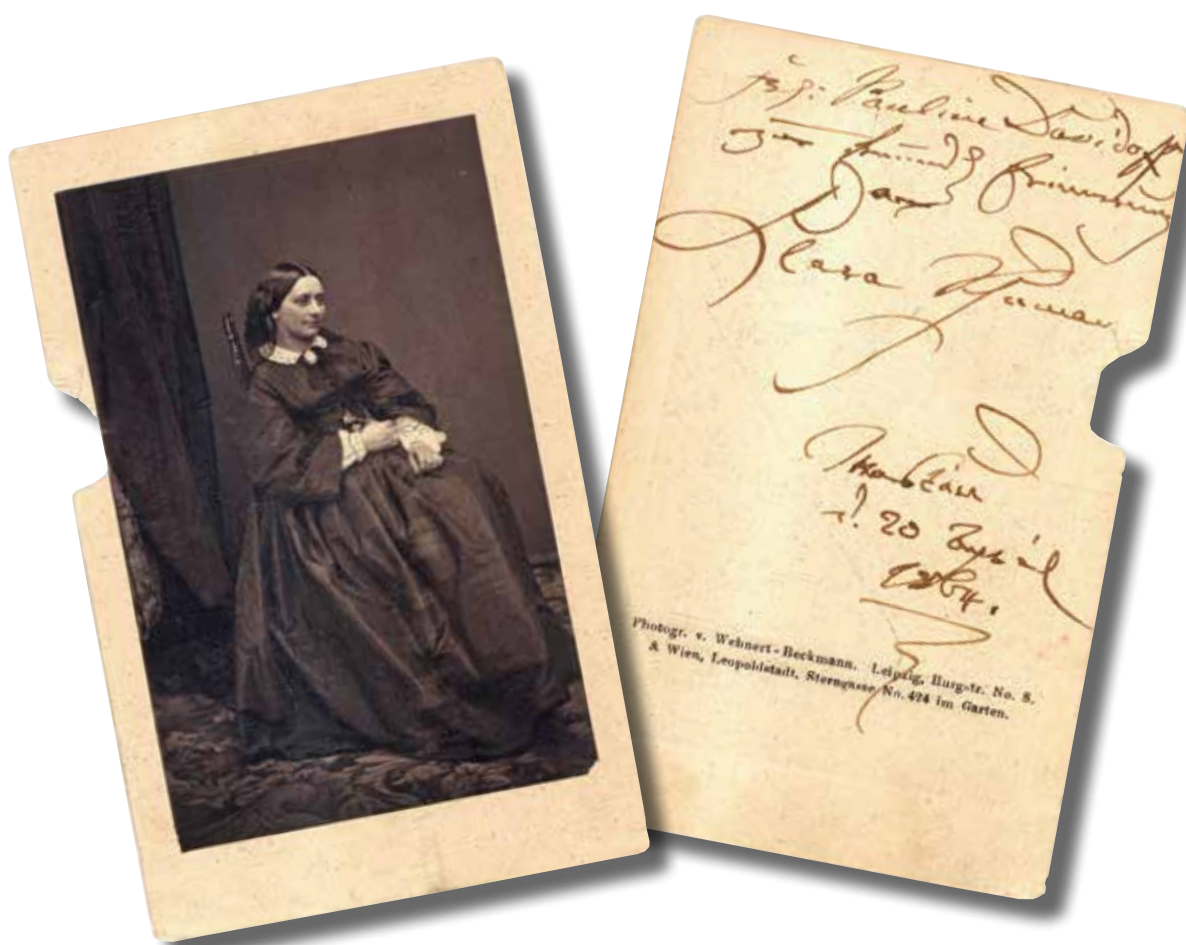 Frl: Pauline Davidoff
zur freundl Erinnerung
von
Clara Schumann
Moskau
d. 20 April
1864.
Photogr. v. Wehnert-Beckmann. Leipzig, Burgstr. No. 8.
& Wien, Leopoldstadt, Sterngasse No. 424 im Garten.